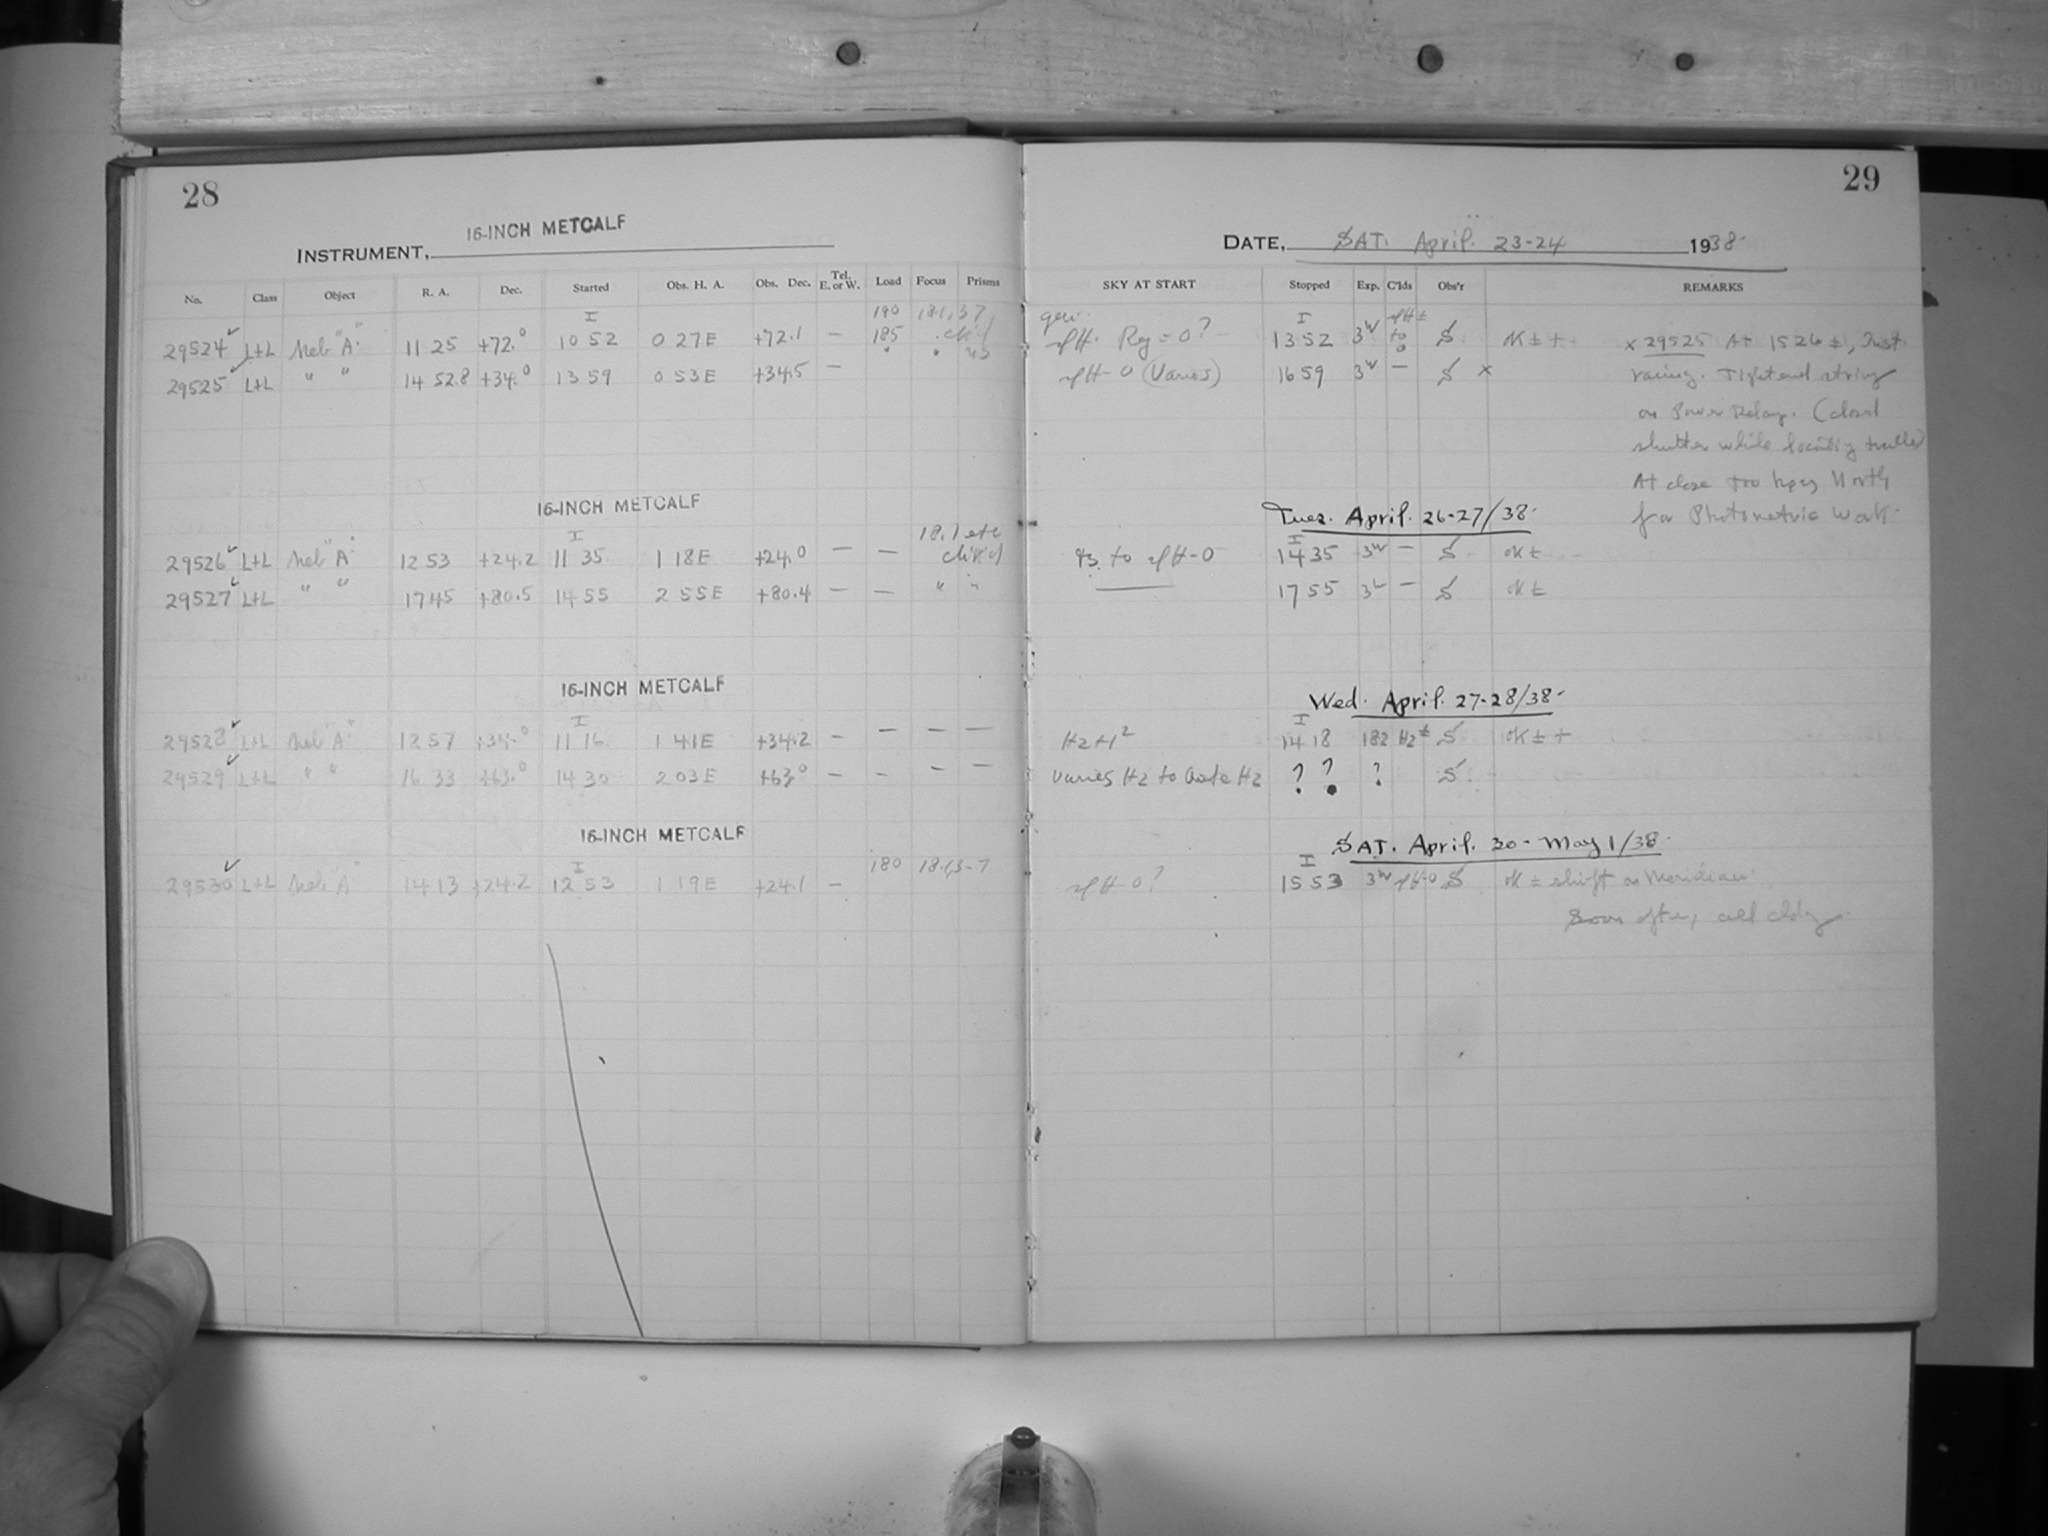 28
INSTRUMENT, 16-INCH METCALF
No. Class Object R. A. Dec. Started Obs. H. A. Obs. Dec. Tel. E. or W. Load Focus Prisms
190
29524 L+L Neb "A" 11 25 +72.0 I 10 52 0 27E +72.1 — 185
29525 L+L " " 14 52.8 +34.0 13 59 0 53E +34.5 — "
16-INCH METCALF
18.1 etc
29526 L+L Neb "A" 12 53 +24.2 I 11 35 1 18E +24.0 — —
29527 L+L " " 17 45 +80.5 14 55 2 55E +80.4 — — " "
16-INCH METCALF
29528 L+L Neb "A" 12 57 +34.0 I 11 16 1 41E +34.2 — — — —
29529 L+L " " 16 33 +63.0 14 30 2 03E +63.0 — — — —
16-INCH METCALF
180
29530 L+L Neb "A" 14 13 +24.2 I 12 53 1 19E +24.1 —
29
DATE, SAT. April. 23-24 1938.
SKY AT START Stopped Exp. C'lds Obs'r REMARKS
Reg = 0? I 13 52 to 0 S. x 29525 At 15 26 ±, Just
-0 (Varies) 16 59 — S x racing. Tightened string
on Power Relay. (closed
shutter while locating trouble)
At close too hazy North
for Photometric Work.
Tues. April. 26-27/38.
to -0 I 14 35 — S OK ±
— 17 55 — S OK ±
Wed. April. 27-28/38.
Hz I 14 18 182 Hz ± S OK ± +
Varies Hz to Hz ? ? ? S.
SAT. April. 30 - May 1/38.
-0? I 15 53 S OK ± shift on Meridian
Soon after, all cldy